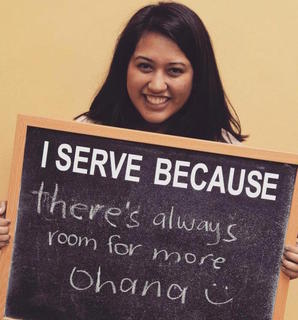 I SERVE BECAUSE
there's always
room for more
ohana :)